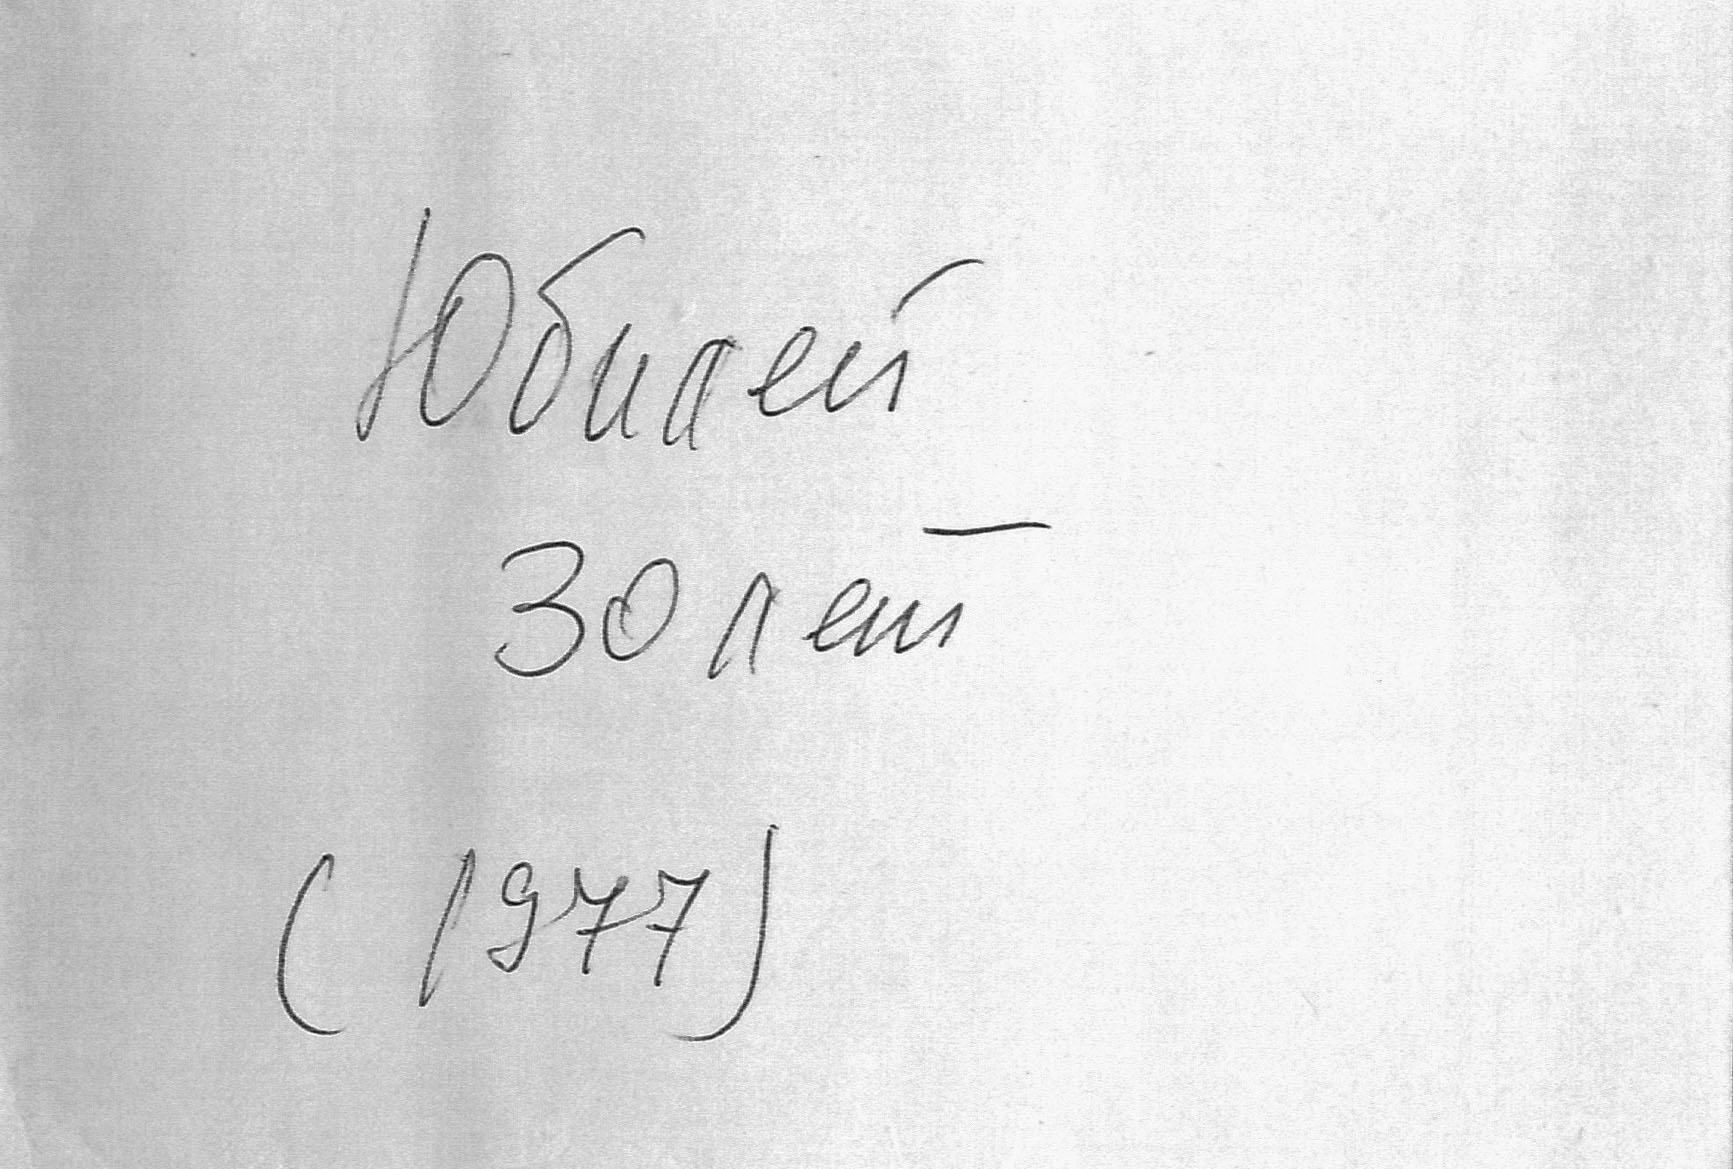 Юбилей
30 лет
(1977)